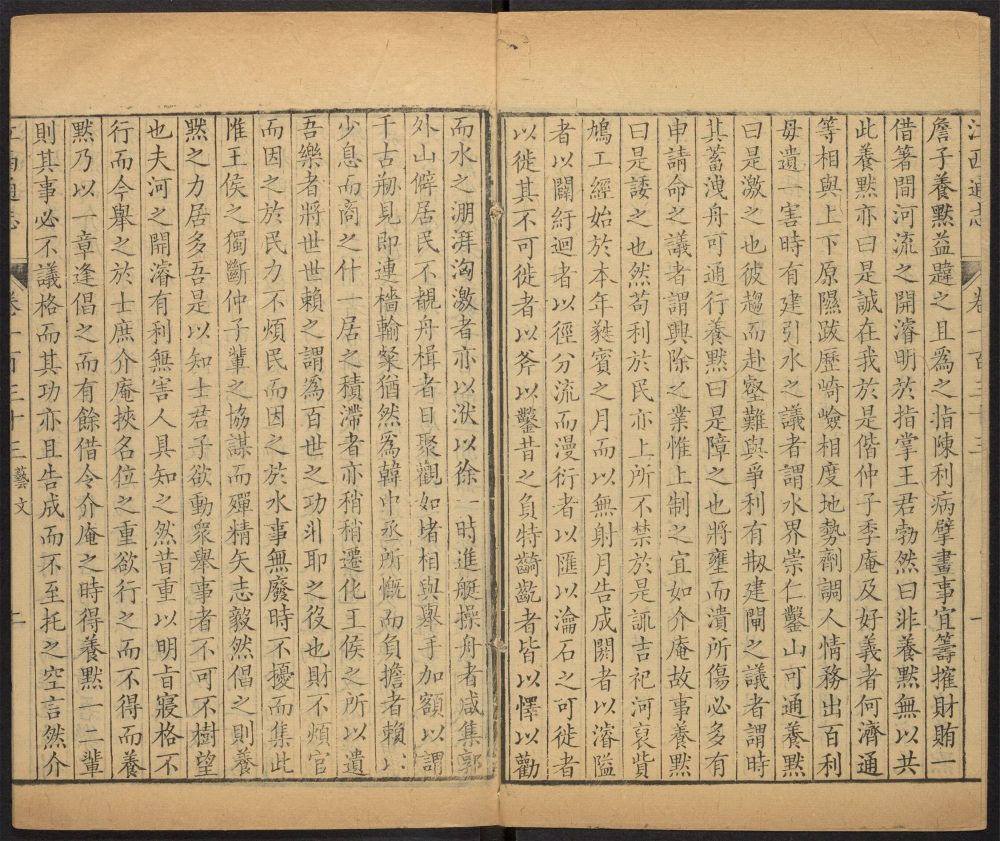 江西通志 卷一百三十三 一
詹子養默益韙之且為之指陳利病擘畫事宜籌摧財賄一
借箸間河流之開濬明於指掌王君勃然曰非養默無以共
此養默亦曰是誠在我於是偕仲子季庵及好義者何濟通
等相與上下原隰跋歷崎嶮相度地勢劑調人情務出百利
毋遺一害時有建引水之議者謂水界崇仁鑿山可通養默
曰是激之也彼趨而赴壑難與爭利有刱建閘之議者謂時
其蓄洩舟可通行養默曰是障之也將壅而潰所傷必多有
申請命之議者謂興除之業惟上制之宜如介庵故事養默
曰是諉之也然苟利於民亦上所不禁於是諏吉祀河裒貲
鳩工經始於本年蕤賓之月而以無射月告成閼者以濬隘
者以闢紆迴者以徑分流而漫衍者以匯以瀹石之可徙者
以徙其不可徙者以斧以鑿昔之負特齮齕者皆以懌以勸
而水之淜湃洶激者亦以洑以徐一時進艇操舟者咸集郭
外山僻居民不覩舟楫者目聚觀如堵相與舉手加額以謂
千古刱見即連檣輸粲猶然為韓中丞所慨而負擔者賴以
少息而商之什一居之積滯者亦稍稍遷化王侯之所以遺
吾樂者將世世賴之謂為百世之功非耶之役也財不煩官
而因之於民力不煩民而因之於水事無廢時不擾而集此
惟王侯之獨斷仲子輩之協謀而殫精矢志毅然倡之則養
默之力居多吾是以知士君子欲動衆舉事者不可不樹望
也夫河之開濬有利無害人具知之然昔重以明旨寢格不
行而今舉之於士庶介庵挾名位之重欲行之而不得而養
默乃以一章逢倡之而有餘借令介庵之時得養默一二輩
則其事必不議格而其功亦且告成而不至托之空言然介
江西通志 卷一百三十三 藝文 二